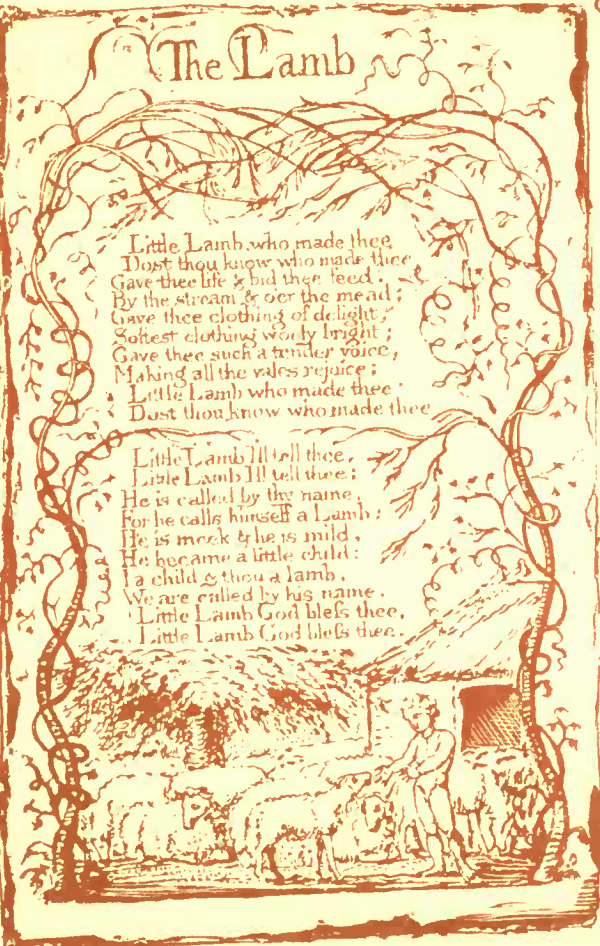 The Lamb
Little Lamb who made thee
Dost thou know who made thee
Gave thee life & bid thee feed.
By the stream & o'er the mead;
Gave thee clothing of delight,
Softest clothing wooly bright;
Gave thee such a tender voice,
Making all the vales rejoice:
Little Lamb who made thee
Dost thou know who made thee
Little Lamb I'll tell thee,
Little Lamb I'll tell thee;
He is called by thy name,
For he calls himself a Lamb:
He is meek & he is mild,
He became a little child:
I a child & thou a lamb,
We are called by his name.
Little Lamb God bleſs thee,
Little Lamb God bleſs thee.